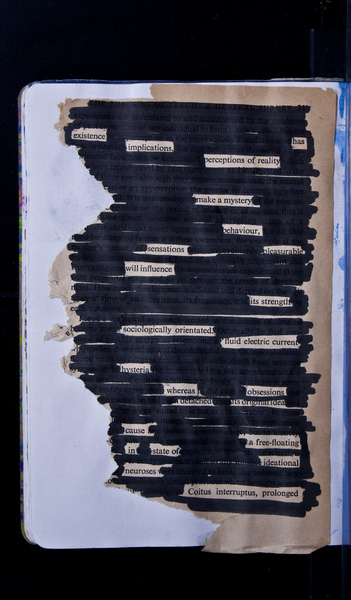 existence has
implications.
perceptions of reality
make a mystery
behaviour,
sensations pleasurable
will influence
its strength
sociologically orientated.
fluid electric current
hysteria
whereas obsessions
detached its original idea
cause
a free-floating
in state of
ideational
neuroses
Coitus interruptus, prolonged